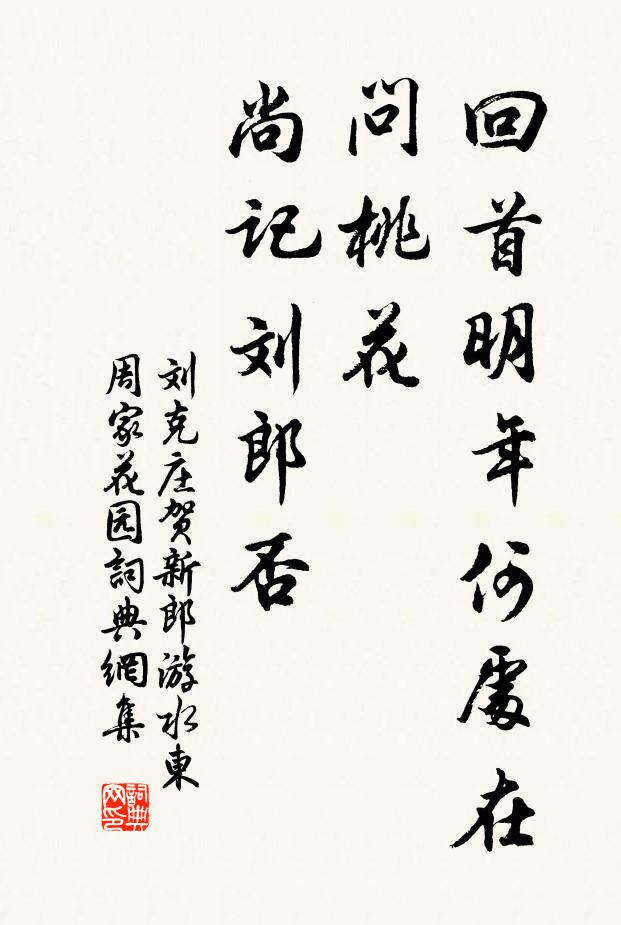 回首明年何處在
問桃花
尚记刘郎否
刘克庄贺新郎游水東
周家花园詞典網集
詞典网印